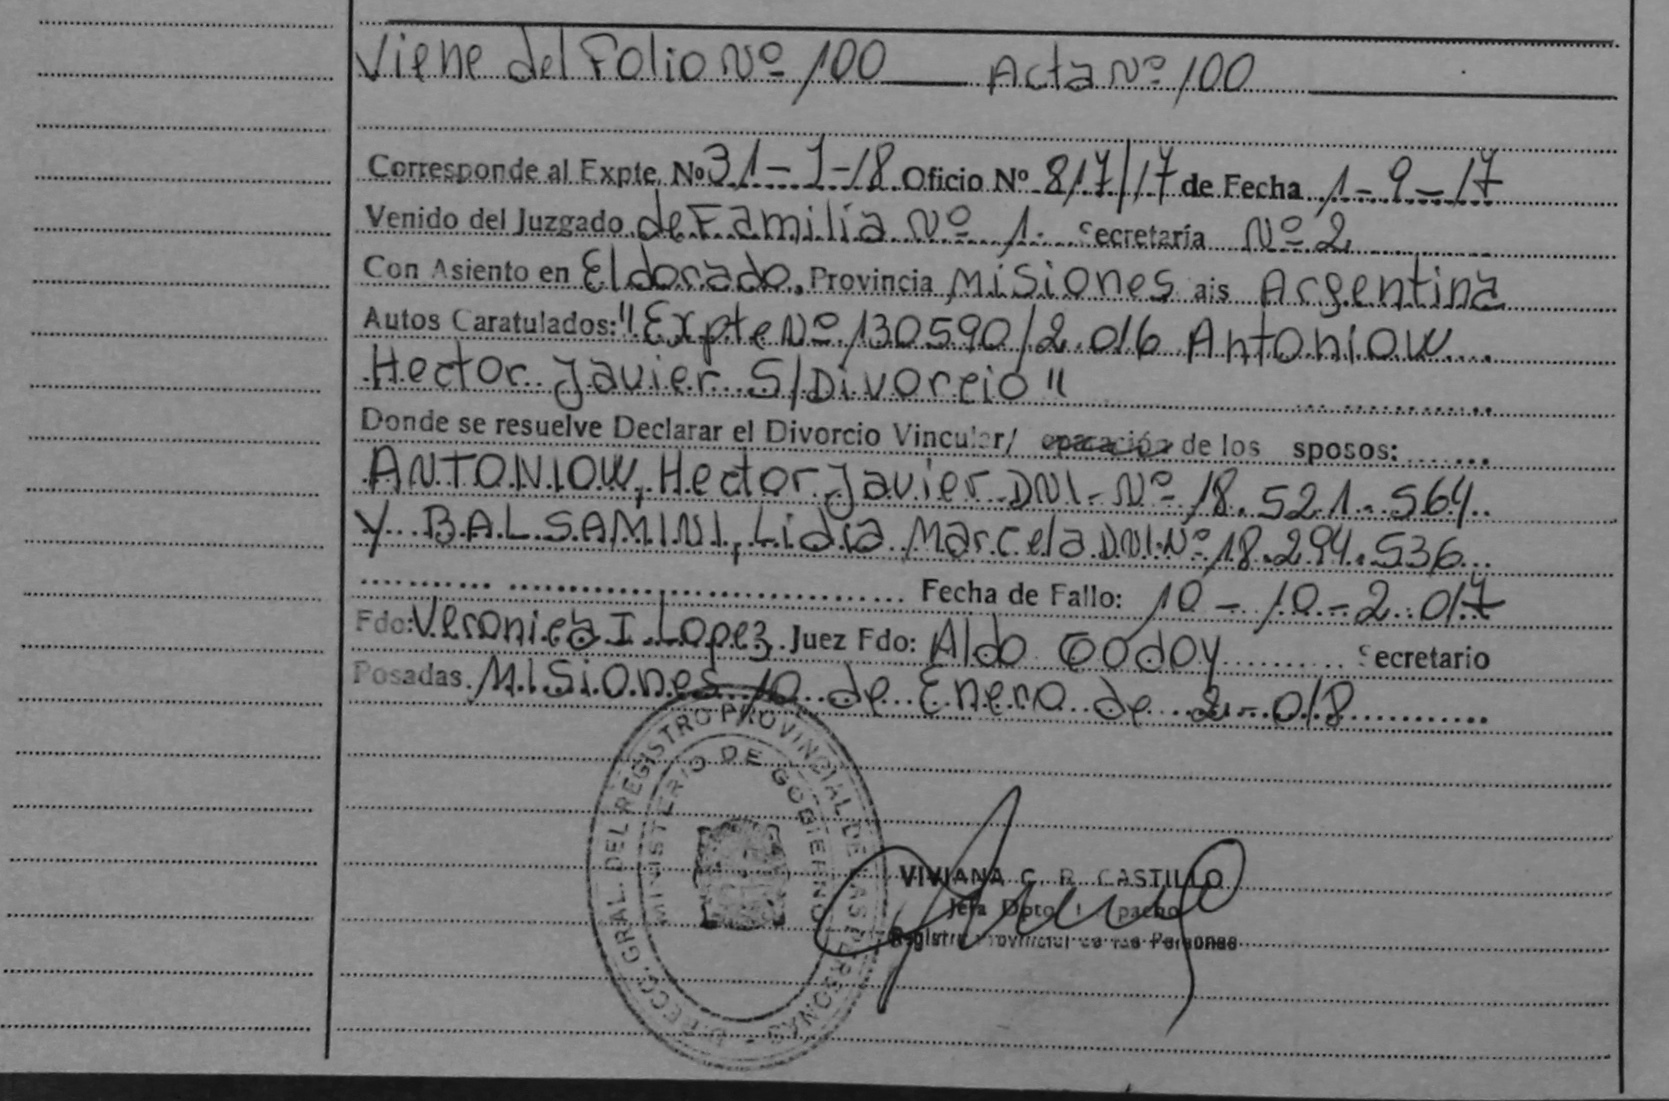 Viene del Folio Nº 100 Acta Nº 100
Corresponde al Expte. Nº 31-J-18 Oficio Nº 817/17 de Fecha 1-9-17
Venido del Juzgado de Familia Nº 1. Secretaría Nº 2
Con Asiento en Eldorado, Provincia Misiones ais Argentina
Autos Caratulados: "Expte Nº 130590/2.016 Antoniow
Hector Javier S/Divorcio"
Donde se resuelve Declarar el Divorcio Vincular/ eparación de los sposos:
ANTONIOW, Hector Javier DNI-Nº 18.521.564
y BALSAMINI, Lidia Marcela DNI.Nº 18.294.536
Fecha de Fallo: 10-10-2.017
Fdo: Veronica I. Lopez Juez Fdo: Aldo Godoy Secretario
Posadas Misiones 10 de Enero de 2.018
DIRECC. GRAL. DEL REGISTRO PROVINCIAL DE LAS PERSONAS
MINISTERIO DE GOBIERNO
VIVIANA C. R. CASTILLO
Jefa Dpto.
Registro Provincial de las Personas